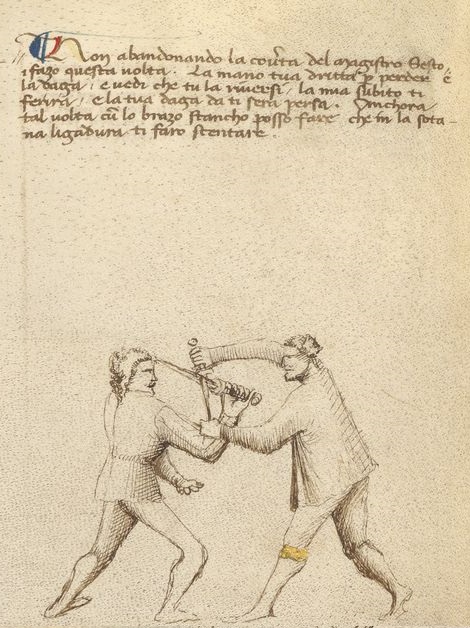 Non abandonando la cov̄ta del magistro Sesto,
i fazo questa volta. La mano tua dritta p̱ perder è
la daga, e vedi che tu la riversi, la mia subito ti
ferirà, e la tua daga da ti serà persa. Anchora
tal volta cū lo brazo stancho posso fare, che in la sota-
na ligadura ti faro stentare.